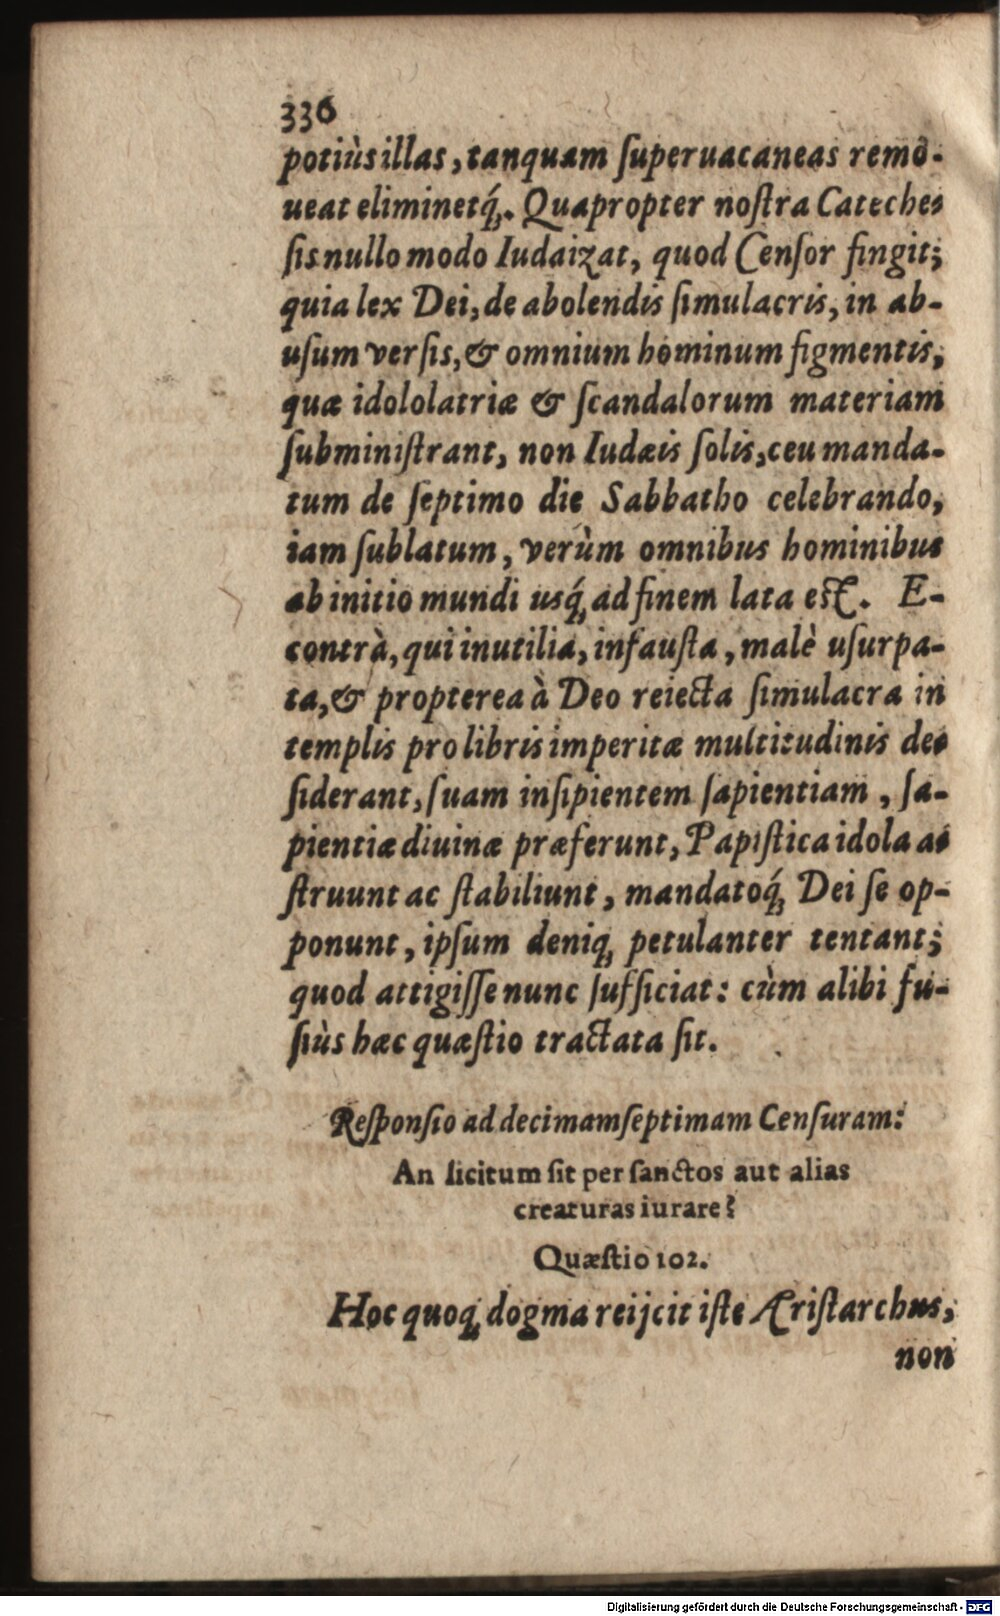 336
potiùs illas, tanquam ſuperuacaneas remo-
ueat eliminetq́;. Quapropter noſtra Cateche-
ſis nullo modo Iudaizat, quod Cenſor fingit;
quia lex Dei, de abolendis ſimulacris, in ab-
uſum verſis, & omnium hominum figmentis,
quæ idololatriæ & ſcandalorum materiam
ſubminiſtrant, non Iudæis ſolis, ceu manda-
tum de ſeptimo die Sabbatho celebrando,
iam ſublatum, verùm omnibus hominibus
ab initio mundi usq́; ad finem lata eſt. E-
contrà, qui inutilia, infauſta, malè uſurpa-
ta, & propterea à Deo reiecta ſimulacra in
templis pro libris imperitæ multitudinis de-
ſiderant, ſuam inſipientem ſapientiam, ſa-
pientiæ diuinæ præferunt, Papiſtica idola a-
ſtruunt ac ſtabiliunt, mandatoq́; Dei ſe op-
ponunt, ipſum deniq; petulanter tentant;
quod attigiſſe nunc ſufficiat: cùm alibi fu-
ſiùs hæc quæſtio tractata ſit.
Reſponſio ad decimamſeptimam Cenſuram:
An licitum ſit per ſanctos aut alias
creaturas iurare?
Quæſtio 102.
Hoc quoq; dogma reijcit iſte Ariſtarchus,
non
Digitalisierung gefördert durch die Deutsche Forschungsgemeinschaft - DFG